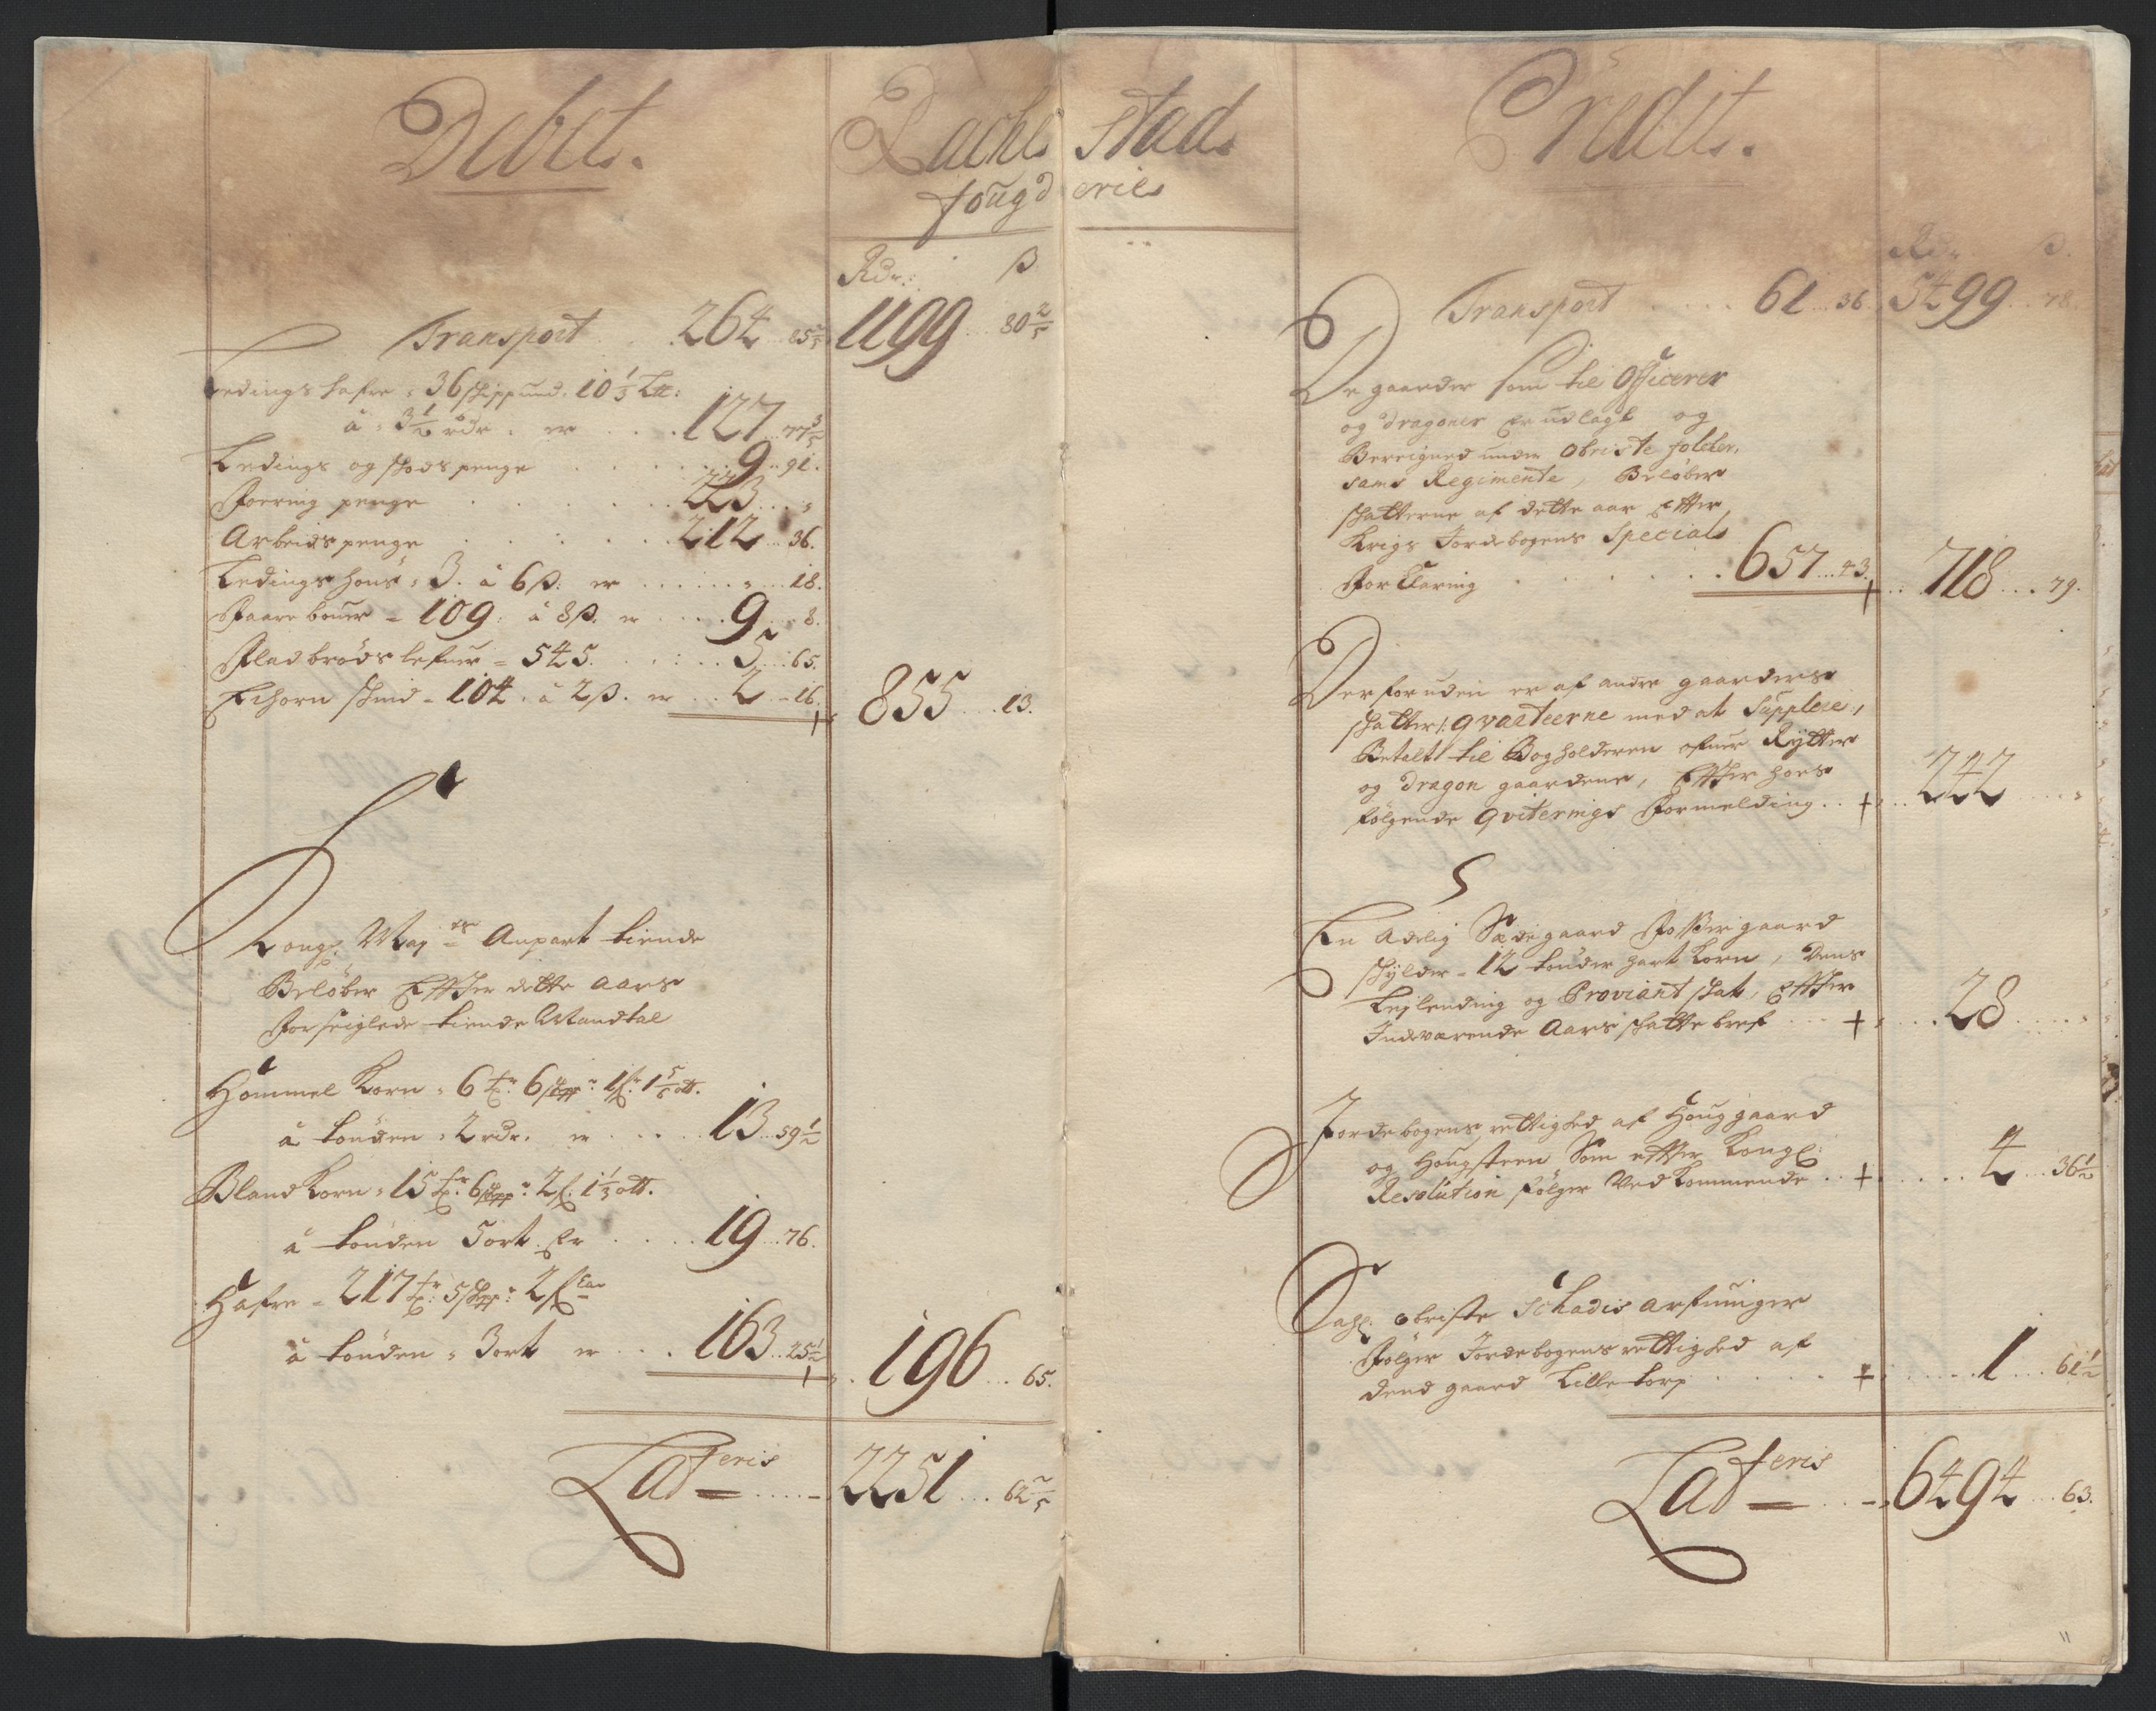 Debet.
Rachestads
fougderies
Rdr: ß
Transport . . 264 . . 85 2/5 1199 . . 80 2/5
Ledings hafre : 36 schippund. 10 1/3 Lit:
à : 3 1/2 rdr . er . . . 127 . . 77 3/5
Ledings og schods penge . . . 9 . . 91.
Foering penge . . . 223 . . "
Arbeids penge . . . 212 . . 36.
Ledings hous : 3. à 6 ß. er . . . " . . 18.
Faare bouer = 109 : à 8 ß. er . . . 9 . . 8.
Fladbrøds lefuer = 545. . . . 5 . . 65.
Echorn schind = 104 . à 2 ß. er . . 2 . . 16. 855 . . 13.
Kongl. May ts Anpart tiende
Beløber Effter dette Aars
Forseiglede tiende Mandtal
Hommel Korn : 6 tr: 6 schpr: 1 f: 1 5/6 ott.
à tønden : 2 rdr. er . . . 13 . . 59 1/2
Bland Korn : 15 tr: 6 schpr: 2 f. 1 1/3 ott.
à tønden 5 ort . Er . . . 19 . . 76.
Hafre = 217 tr: 5 schpr: 2 f
à tønden : 3 ort er . . . 163 . . 25 1/2 196 . . 65.
Lateris . . . 2251 . . 62 2/5
Credit.
Rdr ß.
Transport . . . 61 . . 36. 5499 . . 78.
De gaarder som til Officerer
og Dragoner Er udlagt og
Bereigned under Obriste folcker,
sams Regimente, Beløber
schatterne af dette aar Effter
Krigs Jordebogens Specials
Forklaring . . . 657 . . 43. 718 . . 79.
Derforuden er af andre gaarders
schatter /: qvarteerne med at Supplere,
Betalt til Bogholderen ofuer Rytter
og Dragon gaardene, Effter hoes
følgende qviterings Formelding . . + . . 242 . . "
En Adelig Sædegaard Fosser gaard
schylder = 12 tønder hart Korn, Dens
Leylending og Proviant schat, Effter
Indeværende Aars schatte bref . . + . . 28 . . "
Jordebogens rettighed af Houg gaard
og Hougsteen Som effter Kongl:
Resolution følger Vedkommende . . + . . 4 . . 36 1/2
Sahl. Obriste Schadis arfuinger
Følger Jordebogens rettighed af
dend gaard Lilletorp . . . + . . 1 . . 61 1/2
Lateris . . 6494 . . 63.